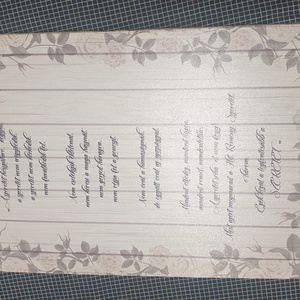 A szeretet hosszútűrő, kegyes;
a szeretet nem irigykedik,
a szeretet nem kérkedik,
nem fuvalkodik fel.
Nem cselekszik éktelenül,
nem keresi a maga hasznát,
nem gerjed haragra,
nem rója fel a gonoszt.
Nem örül a hamisságnak,
de együtt örül az igazsággal.
Mindent elfedez, mindent hiszen,
mindent remél, mindent eltűr.
A szeretet soha el nem fogy:
Most azért megmarad a Hit, Remény, Szeretet,
e három.
Ezek közül a legnagyobb a
SZERETET.